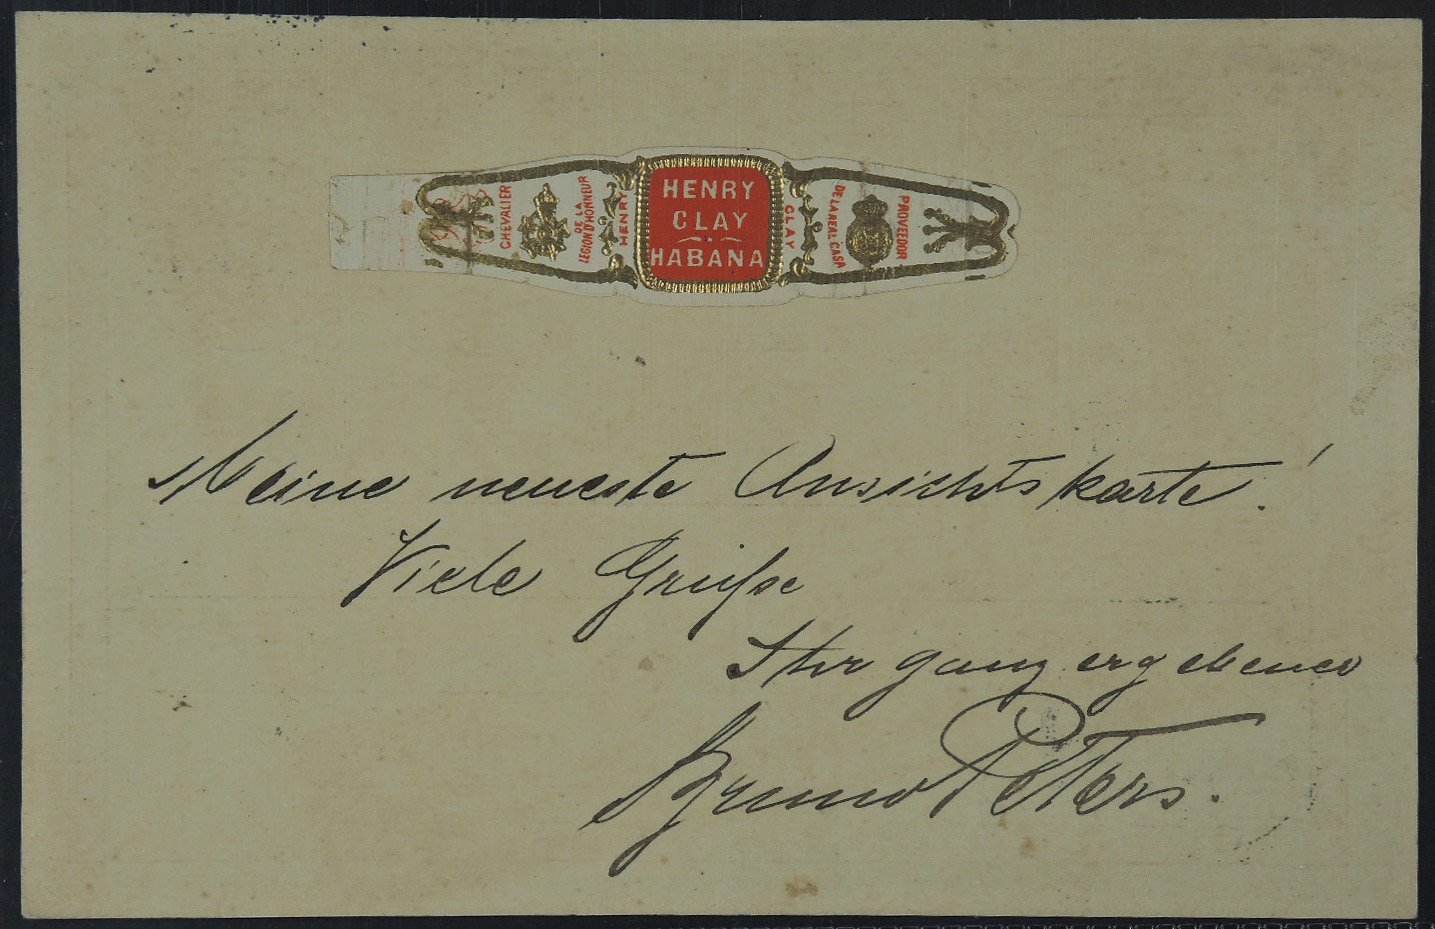 CHEVALIER
DE LA
LEGION D'HONNEUR
HENRY
HENRY
CLAY
HABANA
CLAY
DE LA REAL CASA
PROVEEDOR
Meine neueste Ansichtskarte!
Viele Grüße
Ihr ganz ergebener
Bruno Peters.